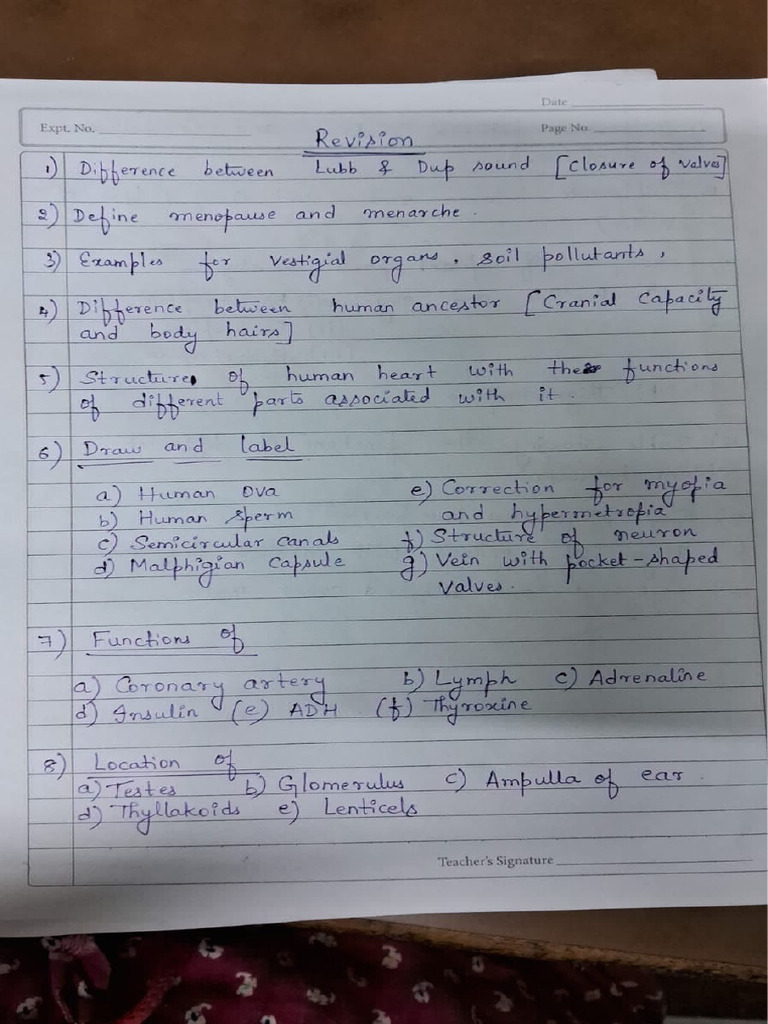 Date
Expt. No.
Page No.
Revision
1) Difference between Lubb & Dup sound [Closure of valve]
2) Define menopause and menarche.
3) Examples for vestigial organs, soil pollutants,
4) Difference between human ancestor [Cranial Capacity
and body hairs]
5) Structure of human heart with the functions
of different parts associated with it.
6) Draw and label
a) Human Ova
b) Human Sperm
c) Semicircular canals
d) Malphigian Capsule
e) Correction for myopia
and hypermetropia
f) Structure of neuron
g) Vein with pocket-shaped
valves.
7) Functions of
a) Coronary artery b) Lymph c) Adrenaline
d) Insulin (e) ADH (f) Thyroxine
8) Location of
a) Testes b) Glomerulus c) Ampulla of ear.
d) Thyllakoids e) Lenticels
Teacher's Signature